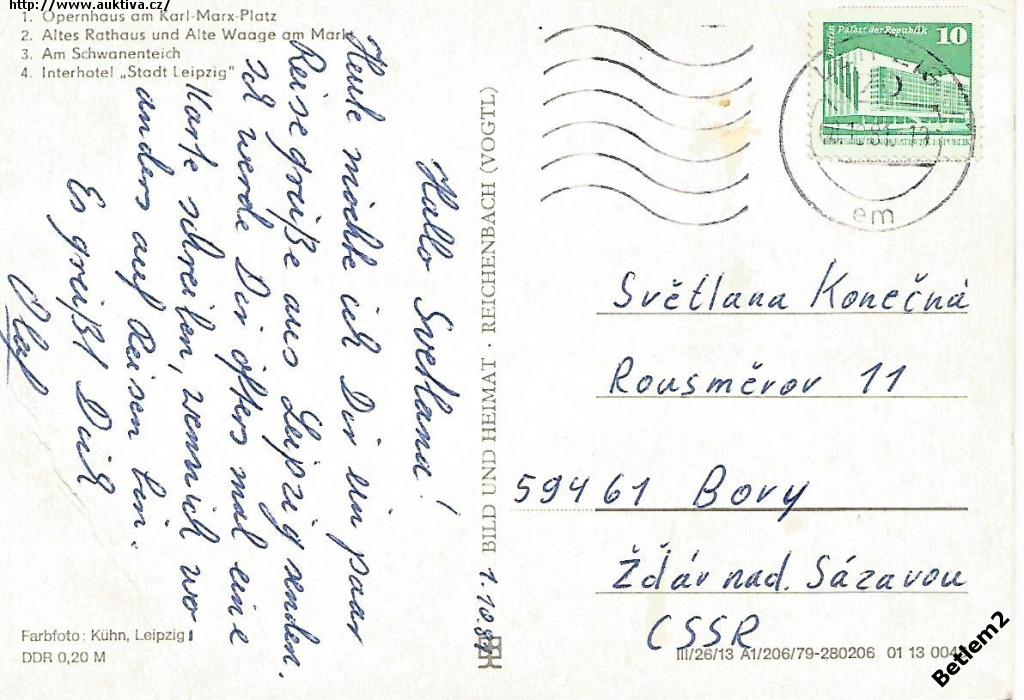 http://www.auktiva.cz/
1. Opernhaus am Karl-Marx-Platz
2. Altes Rathaus und Alte Waage am Markt
3. Am Schwanenteich
4. Interhotel „Stadt Leipzig"
Hallo Svetlana!
Heut möchte ich Dir ein paar
Reisegrüße aus Leipzig senden.
Ich werde Dir öfters mal eine
Karte schreiben, wenn ich wo
anders auf Reisen bin.
Es grüßt Dich
Olaf
BILD UND HEIMAT · REICHENBACH (VOGTL)
1.10.81
Berlin Palast der Republik 10
em
Světlana Konečná
Rousměrov 11
59461 Bory
Žďár nad. Sázavou
CSSR
Farbfoto: Kühn, Leipzig
DDR 0,20 M
III/26/13 A1/206/79-280206 01 13 004
Betlem2